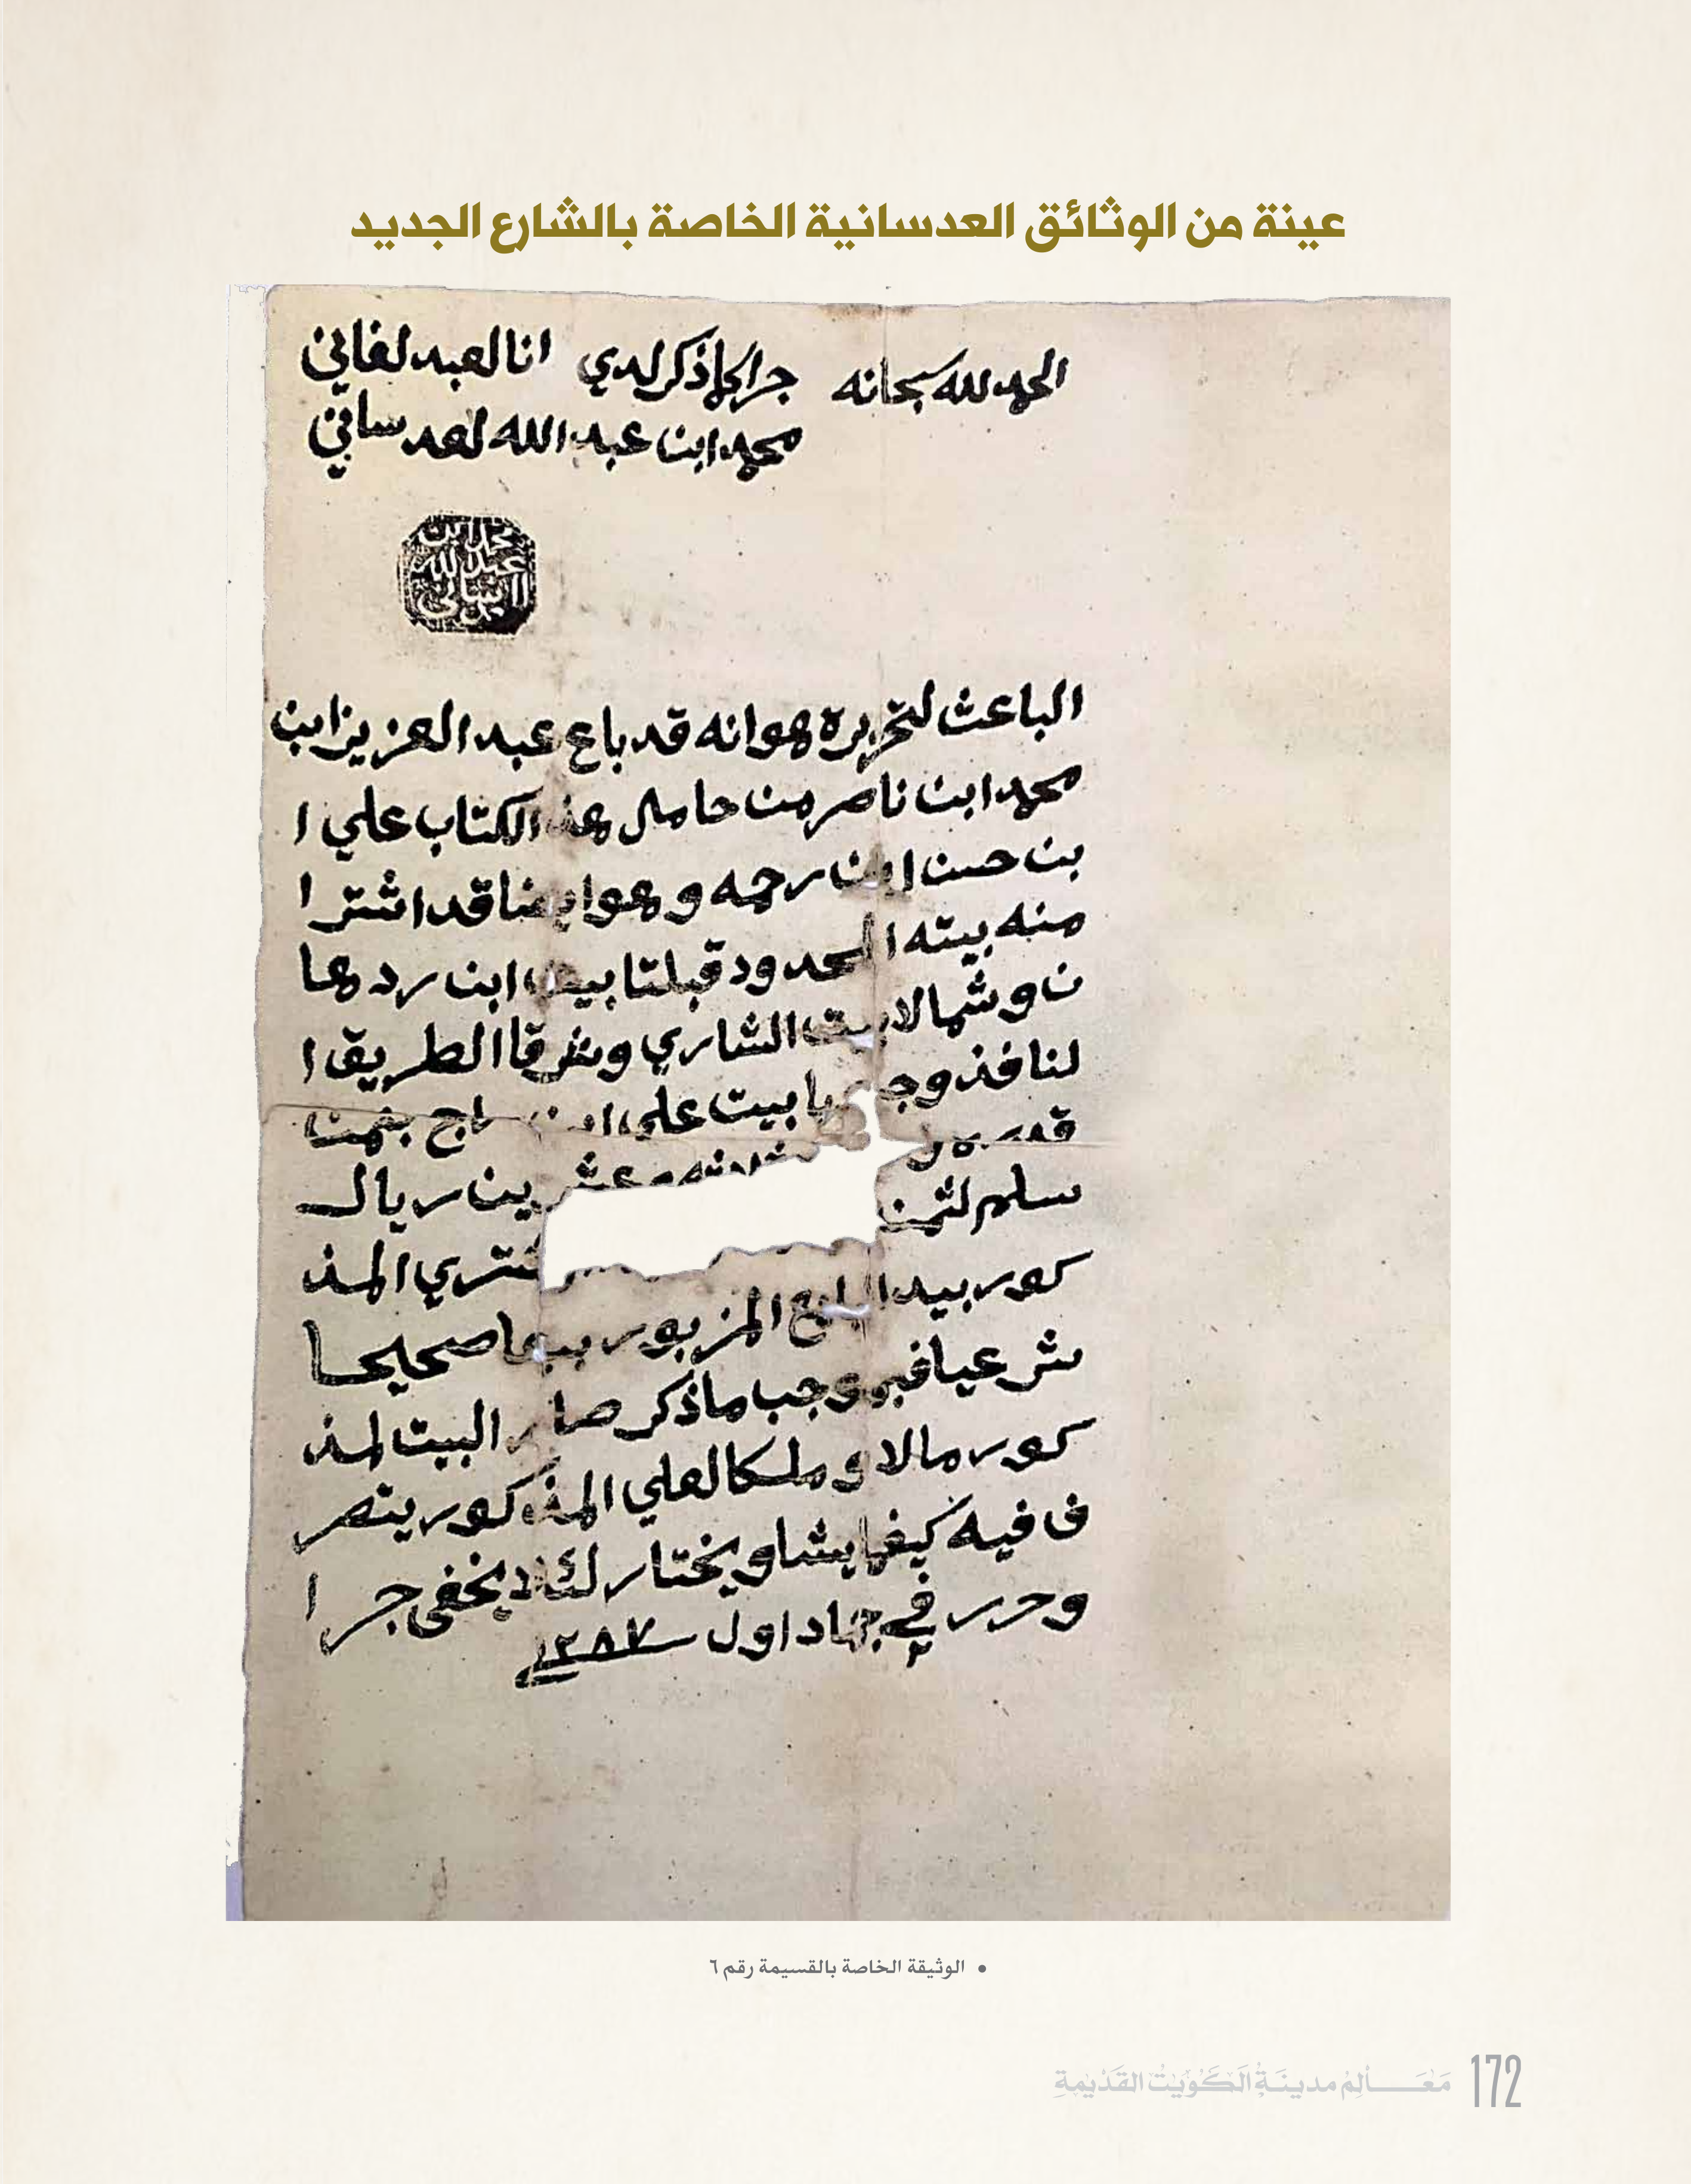 عينة من الوثائق العدسانية الخاصة بالشارع الجديد
الحمد لله سبحانه
جرا كما ذكر لدي انا لعبد لفاني
محمد ابن عبد الله لعدساني
محمد ابن
عبد الله
الباعث لتحريره هو انه قد باع عبد العزيز ابن
محمد ابن ناصر من حامل هذ الكتاب علي ا
بن حسن ابن رحمه وهو ايضا قد اشترا
منه بيته المحدود قبلتا بيت ابن ردها
ن وشمالا بيت الشاري وشرقا الطريق ا
لنافذ بيت علي ابن بثمن
قدره وعشرين ريال
سلم لثمن المذ
كور بيد البايع المزبور بيعا صحيحا
شرعيا فبموجب ما ذكر صار البيت لمذ
كور مالا و ملكا لعلي المذكور يتصر
ف فيه كيفما يشا ويختار لئلا يخفى جر ا
وحرر في جماد اول ١٢٨٧
• الوثيقة الخاصة بالقسيمة رقم ٦
172 معالم مدينة الكويت القديمة